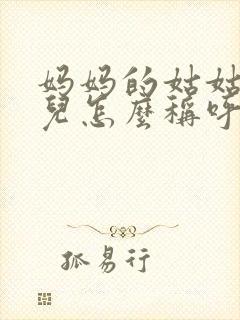 妈妈的姑姑
兒怎麼稱呼
孤易行